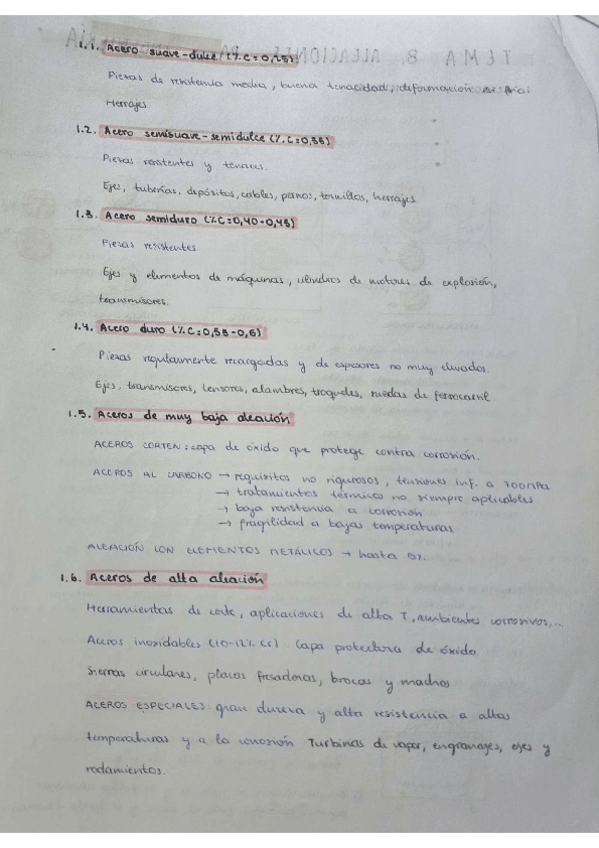 1.1. Acero suave-dulce (%C=0,25)
Piezas de resistencia media, buena tenacidad, deformación en frío.
Herrajes.
1.2. Acero semisuave-semidulce (%C=0,35)
Piezas resistentes y tenaces.
Ejes, tuberías, depósitos, cables, pernos, tornillos, herrajes
1.3. Acero semiduro (%C=0,40-0,45)
Piezas resistentes.
Ejes y elementos de máquinas, cilindros de motores de explosión,
transmisores.
1.4. Acero duro (%C=0,55-0,6)
Piezas regularmente recargadas y de espesores no muy elevados.
Ejes, transmisores, tensores, alambres, troqueles, ruedas de ferrocarril
1.5. Aceros de muy baja aleación
ACEROS CORTEN: capa de óxido que protege contra corrosión.
ACEROS AL CARBONO → requisitos no rigurosos, tensiones inf. a 700MPa
→ tratamientos térmico no siempre aplicables
→ baja resistencia a corrosión
→ fragilidad a bajas temperaturas
ALEACIÓN CON ELEMENTOS METÁLICOS → hasta 5%.
1.6. Aceros de alta aleación
Herramientas de corte, aplicaciones de alta T, ambientes corrosivos,...
Aceros inoxidables (10-12% Cr) Capa protectora de óxido
Sierras circulares, placas fresadoras, brocas y machos
ACEROS ESPECIALES gran dureza y alta resistencia a altas
temperaturas y a la corrosión Turbinas de vapor, engranajes, ejes y
rodamientos.